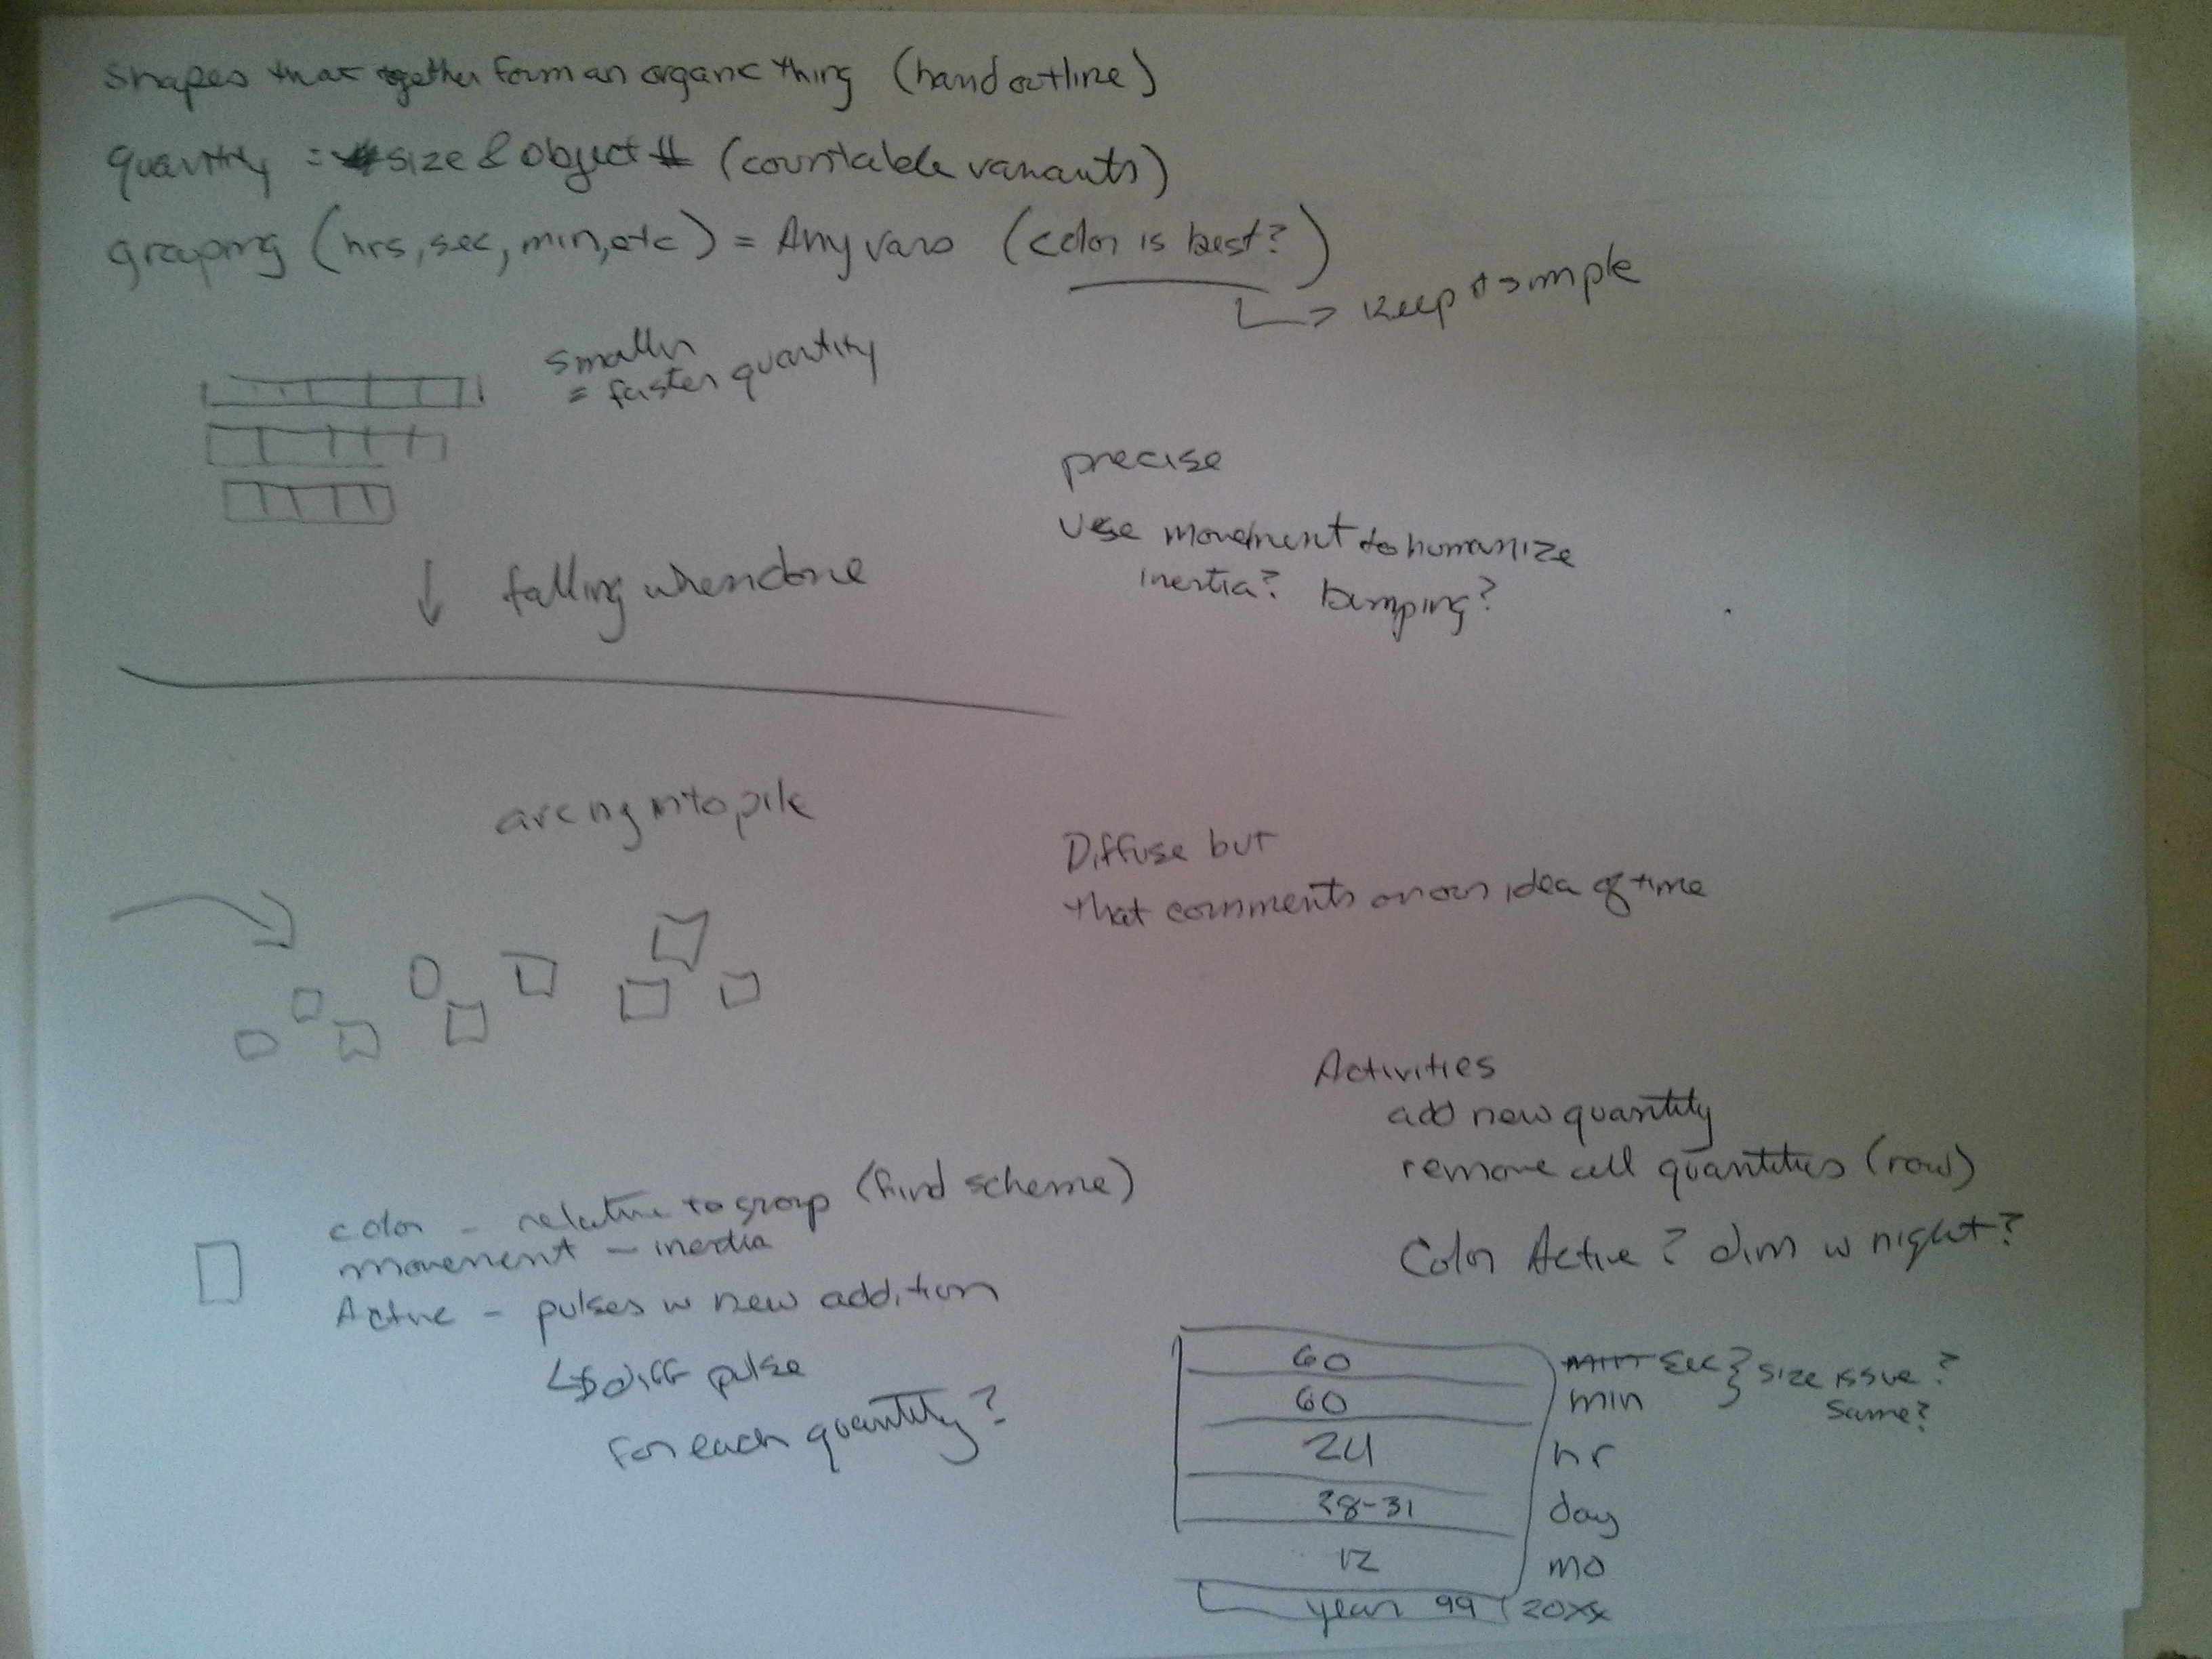 shapes that together form an organic thing (hand outline)
quantity = size & object # (countable variants)
grouping (hrs, sec, min, etc) = Any vars (color is best?)
↳ Keep it simple
smaller
= faster quantity
precise
Use movement to humanize
inertia? bumping?
↓ falling when done
arcing into pile
Diffuse but
that comments on our idea of time
Activities
add new quantity
remove all quantities (row)
Color Active? dim w night?
color - relative to group (find scheme)
movement - inertia
Active - pulses w new addition
↳ diff pulse
for each quantity?
60 min sec } size issue?
60 min same?
24 hr
28-31 day
12 mo
year 99 20xx